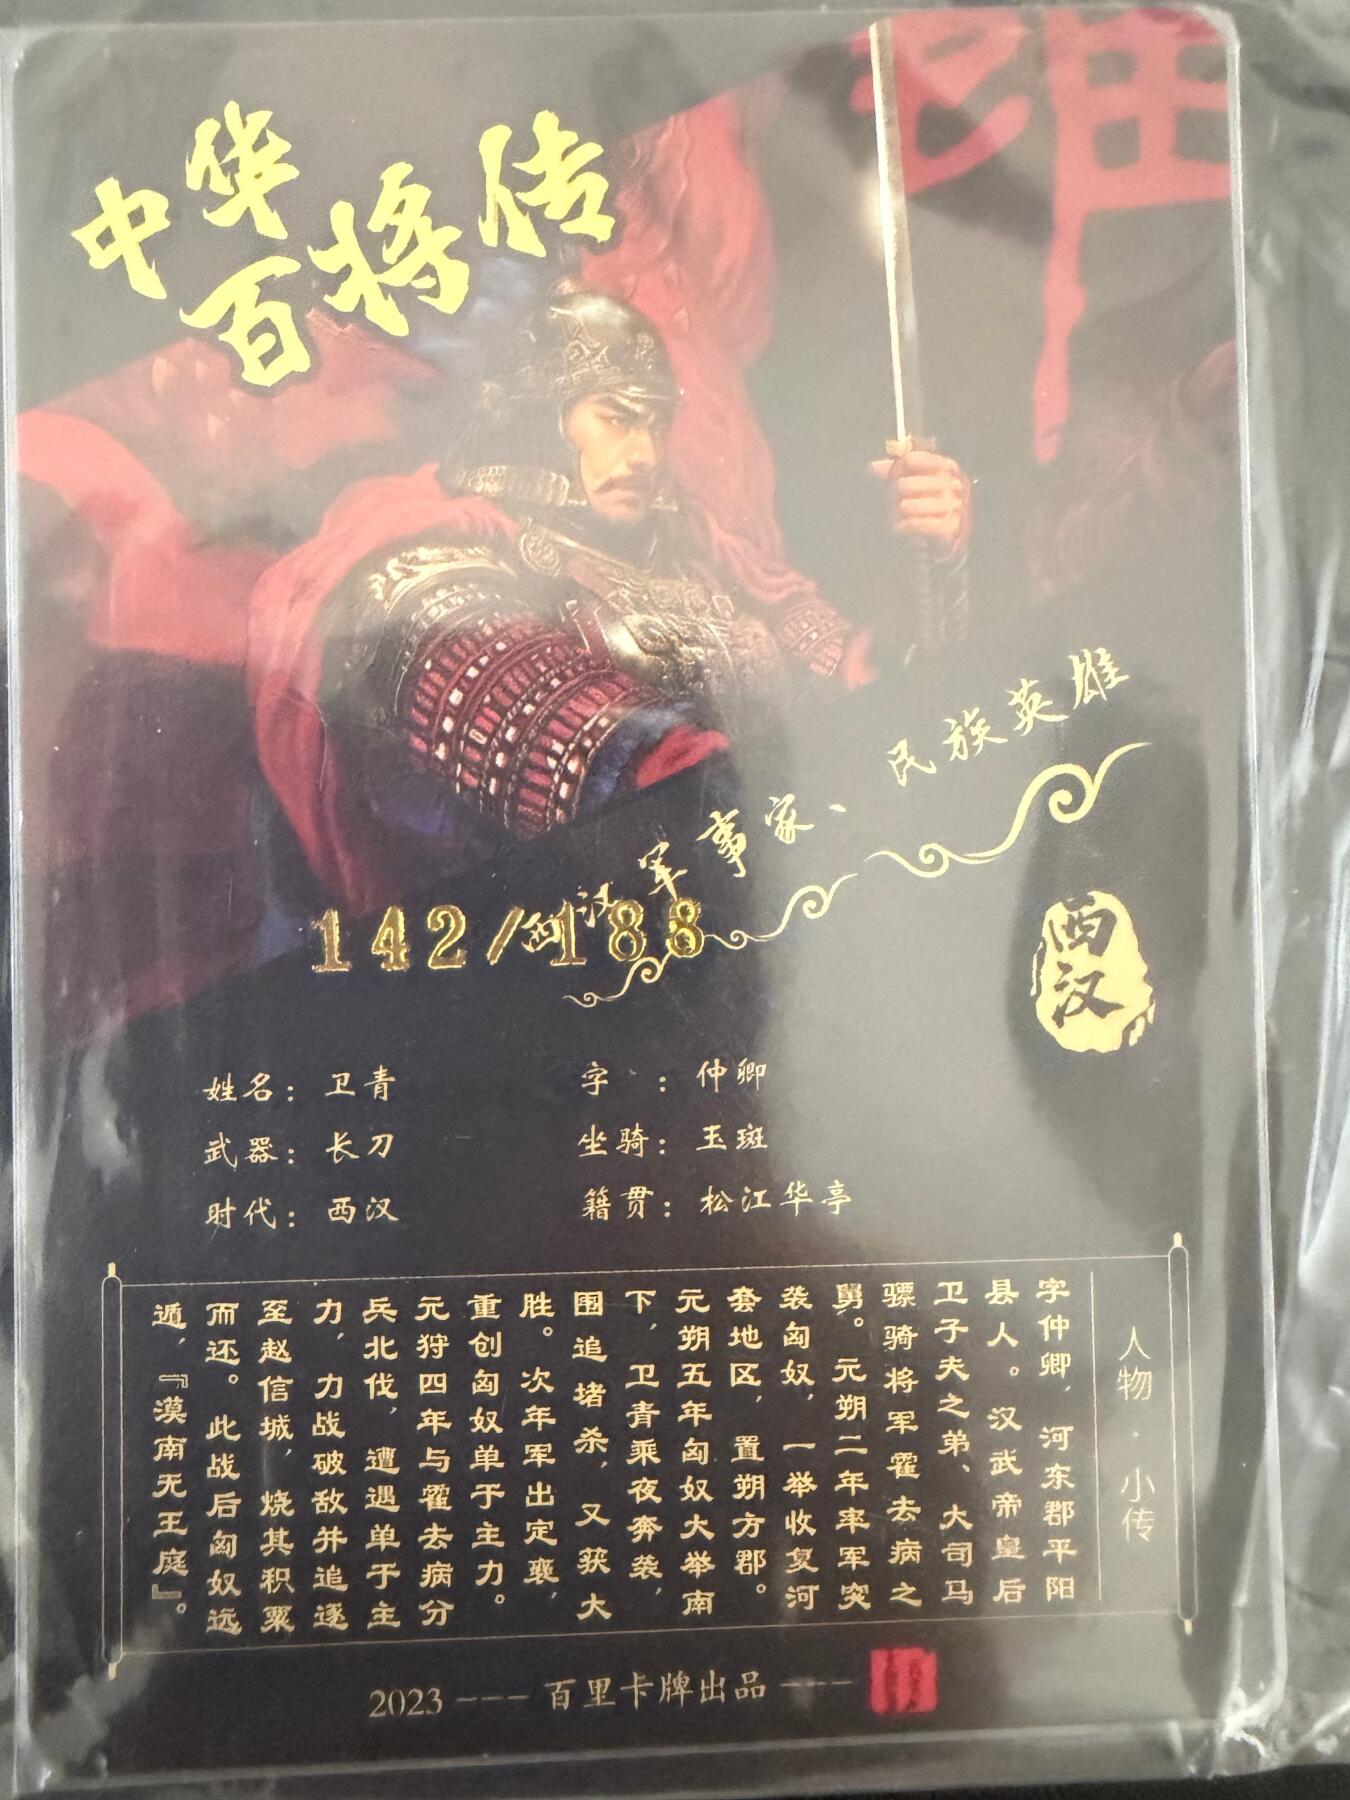 中华
百将传
西汉军事家、民族英雄
142/188
西汉
姓名：卫青
字：仲卿
武器：长刀
坐骑：玉斑
时代：西汉
籍贯：松江华亭
人物·小传
字仲卿，河东郡平阳
县人。汉武帝皇后
卫子夫之弟、大司马
骠骑将军霍去病之
舅。元朔二年率军突
袭匈奴，一举收复河
套地区，置朔方郡。
元朔五年匈奴大举南
下，卫青乘夜奔袭，
围追堵杀，又获大
胜。次年军出定襄，
重创匈奴单于主力。
元狩四年与霍去病分
兵北伐，遭遇单于主
力，力战破敌并追逐
至赵信城，烧其积粟
而还。此战后匈奴远
遁，『漠南无王庭』。
2023---百里卡牌出品---